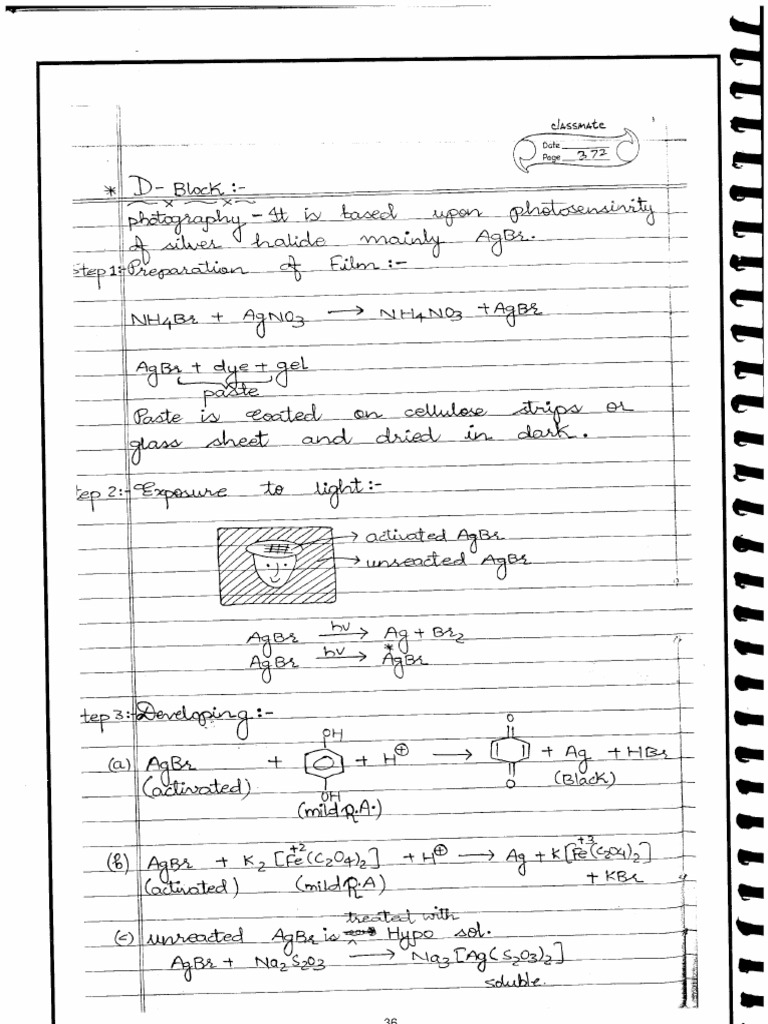 classmate
Date
Page 372
* D- Block:-
photography - It is based upon photosensivity
of silver halide mainly AgBr.
Step 1:- Preparation of Film:-
NH4Br + AgNO3 → NH4NO3 + AgBr
AgBr + dye + gel
paste
Paste is coated on cellulose strips or
glass sheet and dried in dark.
tep 2:- Exposure to light:-
→ activated AgBr
→ unreacted AgBr
AgBr hν→ Ag + Br2
AgBr hν→ A*gBr
tep 3:- Developing:-
OH
O
(a) AgBr + + H⊕ → + Ag + HBr
(activated) OH O (Black)
(mild R.A.)
(b) AgBr + K2[Fe+2(C2O4)2] + H⊕ → Ag + K[Fe+3(C2O4)2]
(activated) (mild R.A) + KBr
treated with
(c) unreacted AgBr is Hypo sol.
AgBr + Na2S2O3 → Na3[Ag(S2O3)2]
soluble.
36